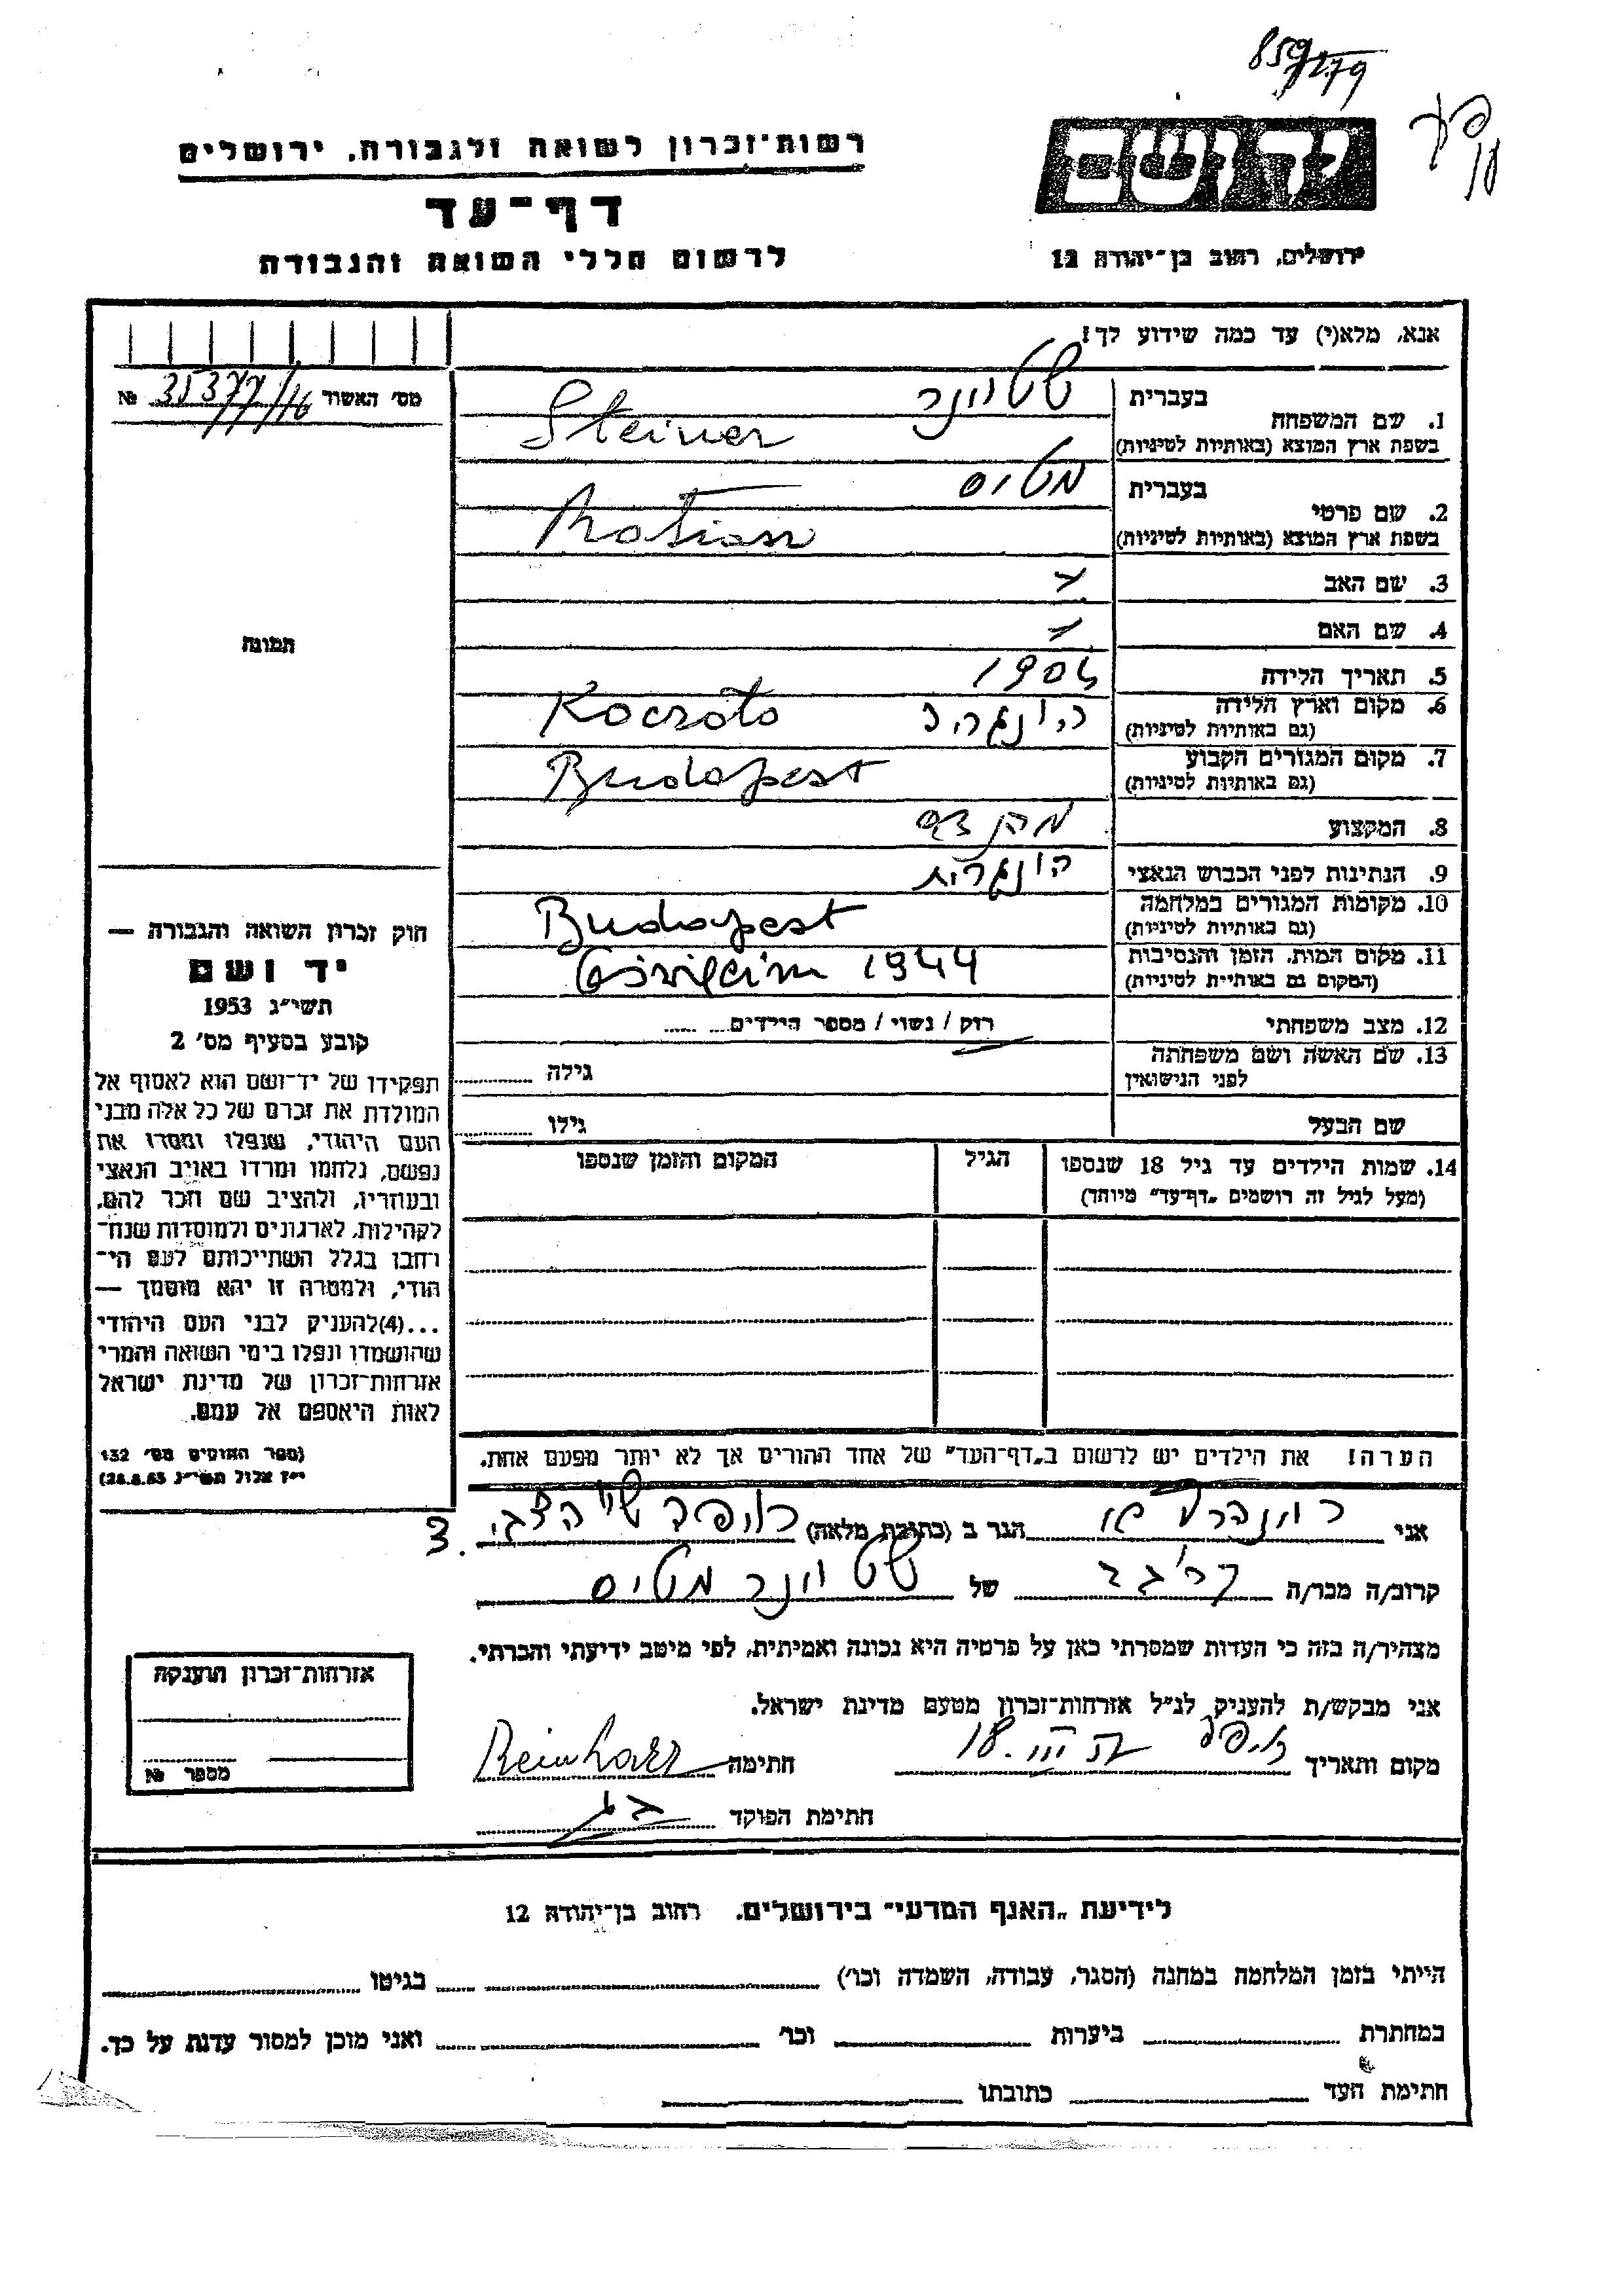 859/279
רשות־זכרון לשואה ולגבורה, ירושלים
יד ושם
דף־עד
לרשום חללי השואה והגבורה
ירושלים, רחוב בן־יהודה 12
אנא, מלא(י) עד כמה שידוע לך!
מס' האשור № 35377/16
1. שם המשפחה
בעברית שטיינר
בשפת ארץ המוצא (באותיות לטיניות) Steiner
2. שם פרטי
בעברית מטיס
בשפת ארץ המוצא (באותיות לטיניות)
3. שם האב
4. שם האם
5. תאריך הלידה 1904
6. מקום וארץ הלידה
(גם באותיות לטיניות) הונגריה
7. מקום המגורים הקבוע
(גם באותיות לטיניות) Budapest
8. המקצוע
9. הנתינות לפני הכבוש הנאצי הונגרית
10. מקומות המגורים במלחמה
(גם באותיות לטיניות) Budapest
11. מקום המות, הזמן והנסיבות
(המקום גם באותיית לטיניות) 1944
12. מצב משפחתי רווק / נשוי / מספר הילדים
13. שם האשה ושם משפחתה
לפני הנישואין גילה
שם הבעל גילו
14. שמות הילדים עד גיל 18 שנספו הגיל המקום והזמן שנספו
(מעל לגיל זה רושמים „דף־עד" מיוחד)
הערה! את הילדים יש לרשום ב„דף־העד" של אחד ההורים אך לא יותר מפעם אחת.
תמונה
חוק זכרון השואה והגבורה —
יד ושם
תשי״ג 1953
קובע בסעיף מס' 2
תפקידו של יד־ושם הוא לאסוף אל
המולדת את זכרם של כל אלה מבני
העם היהודי, שנפלו ומסרו את
נפשם, נלחמו ומרדו באויב הנאצי
ובעוזריו, ולהציב שם וזכר להם,
לקהילות, לארגונים ולמוסדות שנח־
רחבו בגלל השתייכותם לעם הי־
הודי, ולמטרה זו יהא מוסמך —
...(4)להעניק לבני העם היהודי
שהושמדו ונפלו בימי השואה והמרי
אזרחות־זכרון של מדינת ישראל
לאות היאספם אל עמם.
(ספר החוקים מס' 132
י״ז אלול תשי״ג 28.8.53)
אני הגר ב (כתובת מלאה)
קרוב/ה מכר/ה של שטיינר מטיס
מצהיר/ה בזה כי העדות שמסרתי כאן על פרטיה היא נכונה ואמיתית, לפי מיטב ידיעתי והכרתי.
אני מבקש/ת להעניק לנ״ל אזרחות־זכרון מטעם מדינת ישראל.
מקום ותאריך חתימה
חתימת הפוקד
אזרחות־זכרון הוענקה
מספר №
לידיעת „האגף המדעי" בירושלים, רחוב בן־יהודה 12
הייתי בזמן המלחמה במחנה (הסגר, עבודה, השמדה וכו') בגיטו
במחתרת ביערות וכו' ואני מוכן למסור עדות על כך.
חתימת העד כתובתו